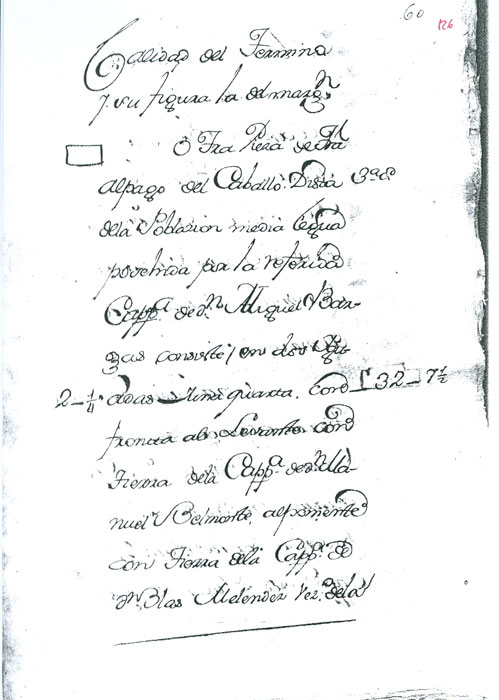 60
126
Calidad del Termino
y su figura la del margn
O Tra Pieza de tra
al pago del Caballo. Dista 3ª &
dela Poblazion media legua
posehida por la referida
Cappª. de Dn. Miguel Bar-
zas consiste en dos
2-¼. adas y una quarta.
frontea al Levante con
Tierra dela Cappª. de Dn Ma-
nuel Belmonte, al poniente
con Tierra dela Cappª. de
Dn. Blas Melendez Vez. dela